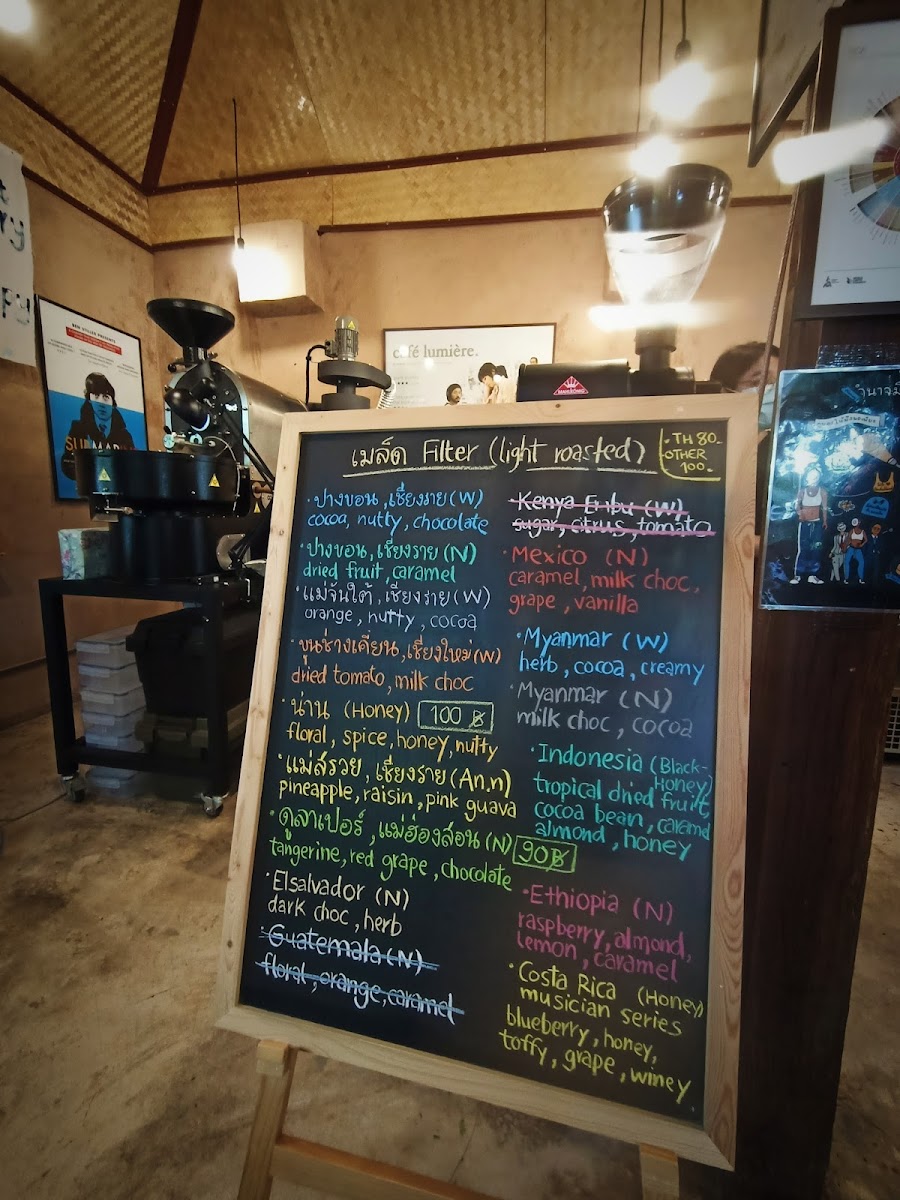 เมล็ด Filter (light roasted)
TH 80.-
OTHER
100.-
・ปางขอน, เชียงราย (W)
cocoa, nutty, chocolate
・ปางขอน, เชียงราย (N)
dried fruit, caramel
・แม่จันใต้, เชียงราย (W)
orange, nutty, cocoa
・ขุนช่างเคี่ยน, เชียงใหม่ (W)
dried tomato, milk choc
・น่าน (Honey) 100 ฿
floral, spice, honey, nutty
・แม่สรวย, เชียงราย (An.n)
pineapple, raisin, pink guava
・ดูลาเปอร์, แม่ฮ่องสอน (N) 90฿
tangerine, red grape, chocolate
・Elsalvador (N)
dark choc, herb
・Guatemala (N)
floral, orange, caramel
Kenya Embu (W)
sugar, citrus, tomato
・Mexico (N)
caramel, milk choc,
grape, vanilla
・Myanmar (W)
herb, cocoa, creamy
・Myanmar (N)
milk choc, cocoa
・Indonesia (Black-
Honey)
tropical dried fruit,
cocoa bean, caramel
almond, honey
・Ethiopia (N)
raspberry, almond,
lemon, caramel
・Costa Rica (Honey)
musician series
blueberry, honey,
toffy, grape, winey
café lumière.
BEN STILLER PRESENTS
SUBMAR